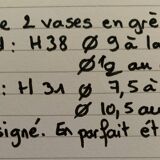 e 2 vases en grè
: H38 Ø 9 à la
Ø 12 au
: H 31 Ø 7,5 à
Ø 10,5 au
signé. En parfait ét